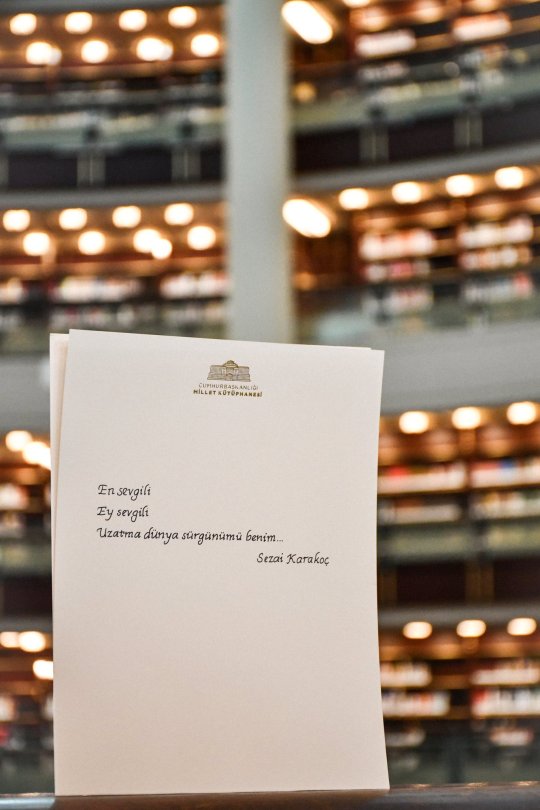 CUMHURBAŞKANLIĞI
MİLLET KÜTÜPHANESİ
En sevgili
Ey sevgili
Uzatma dünya sürgünümü benim...
Sezai Karakoç